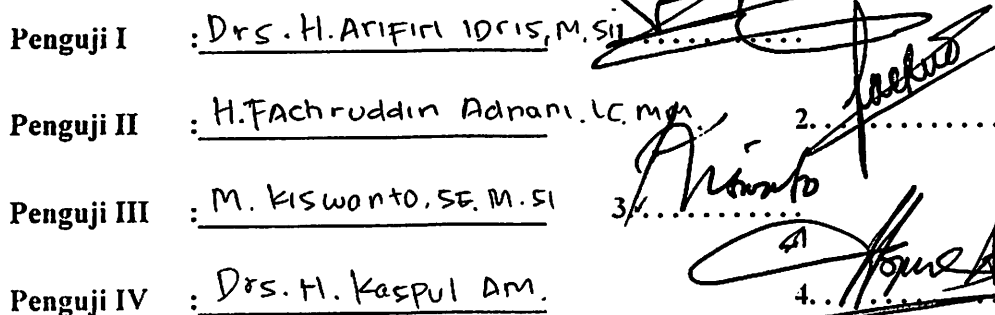 Penguji I : Drs. H. Arifin Idris, M. Si ........
Penguji II : H. Fachruddin Adnani. LC. MM. 2. ........
Penguji III : M. Kiswanto. SE. M. SI 3. ........
Penguji IV : Drs. H. Kaspul AM. 4. ........